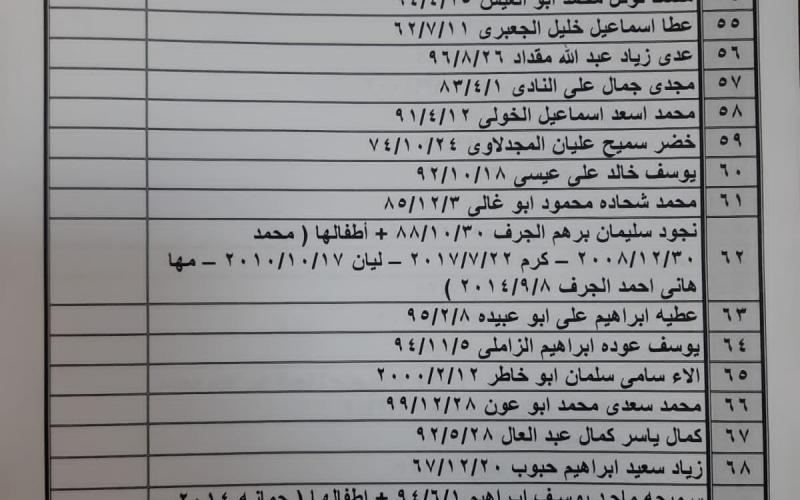 ٥٥ عطا اسماعيل خليل الجعبرى ٦٢/٧/١١
٥٦ عدى زياد عبد الله مقداد ٩٦/٨/٢٦
٥٧ مجدى جمال على النادى ٨٣/٤/١
٥٨ محمد اسعد اسماعيل الخولى ٩١/٤/١٢
٥٩ خضر سميح عليان المجدلاوى ٧٤/١٠/٢٤
٦٠ يوسف خالد على عيسى ٩٢/١٠/١٨
٦١ محمد شحاده محمود ابو غالى ٨٥/١٢/٣
نجود سليمان برهم الجرف ٨٨/١٠/٣٠ + أطفالها ( محمد
٦٢ ٢٠٠٨/١٢/٣٠ – كرم ٢٠١٧/٧/٢٢ – ليان ٢٠١٠/١٠/١٧ – مها
هانى احمد الجرف ٢٠١٤/٩/٨ )
٦٣ عطيه ابراهيم على ابو عبيده ٩٥/٢/٨
٦٤ يوسف عوده ابراهيم الزاملى ٩٤/١١/٥
٦٥ الاء سامى سلمان ابو خاطر ٢٠٠٠/٢/١٢
٦٦ محمد سعدى محمد ابو عون ٩٩/١٢/٢٨
٦٧ كمال ياسر كمال عبد العال ٩٢/٥/٢٨
٦٨ زياد سعيد ابراهيم حبوب ٦٧/١٢/٢٠
ماجد يوسف ابراهيم ٩٤/٦/١ + اطفالها ( جمانه ٢٠١٤